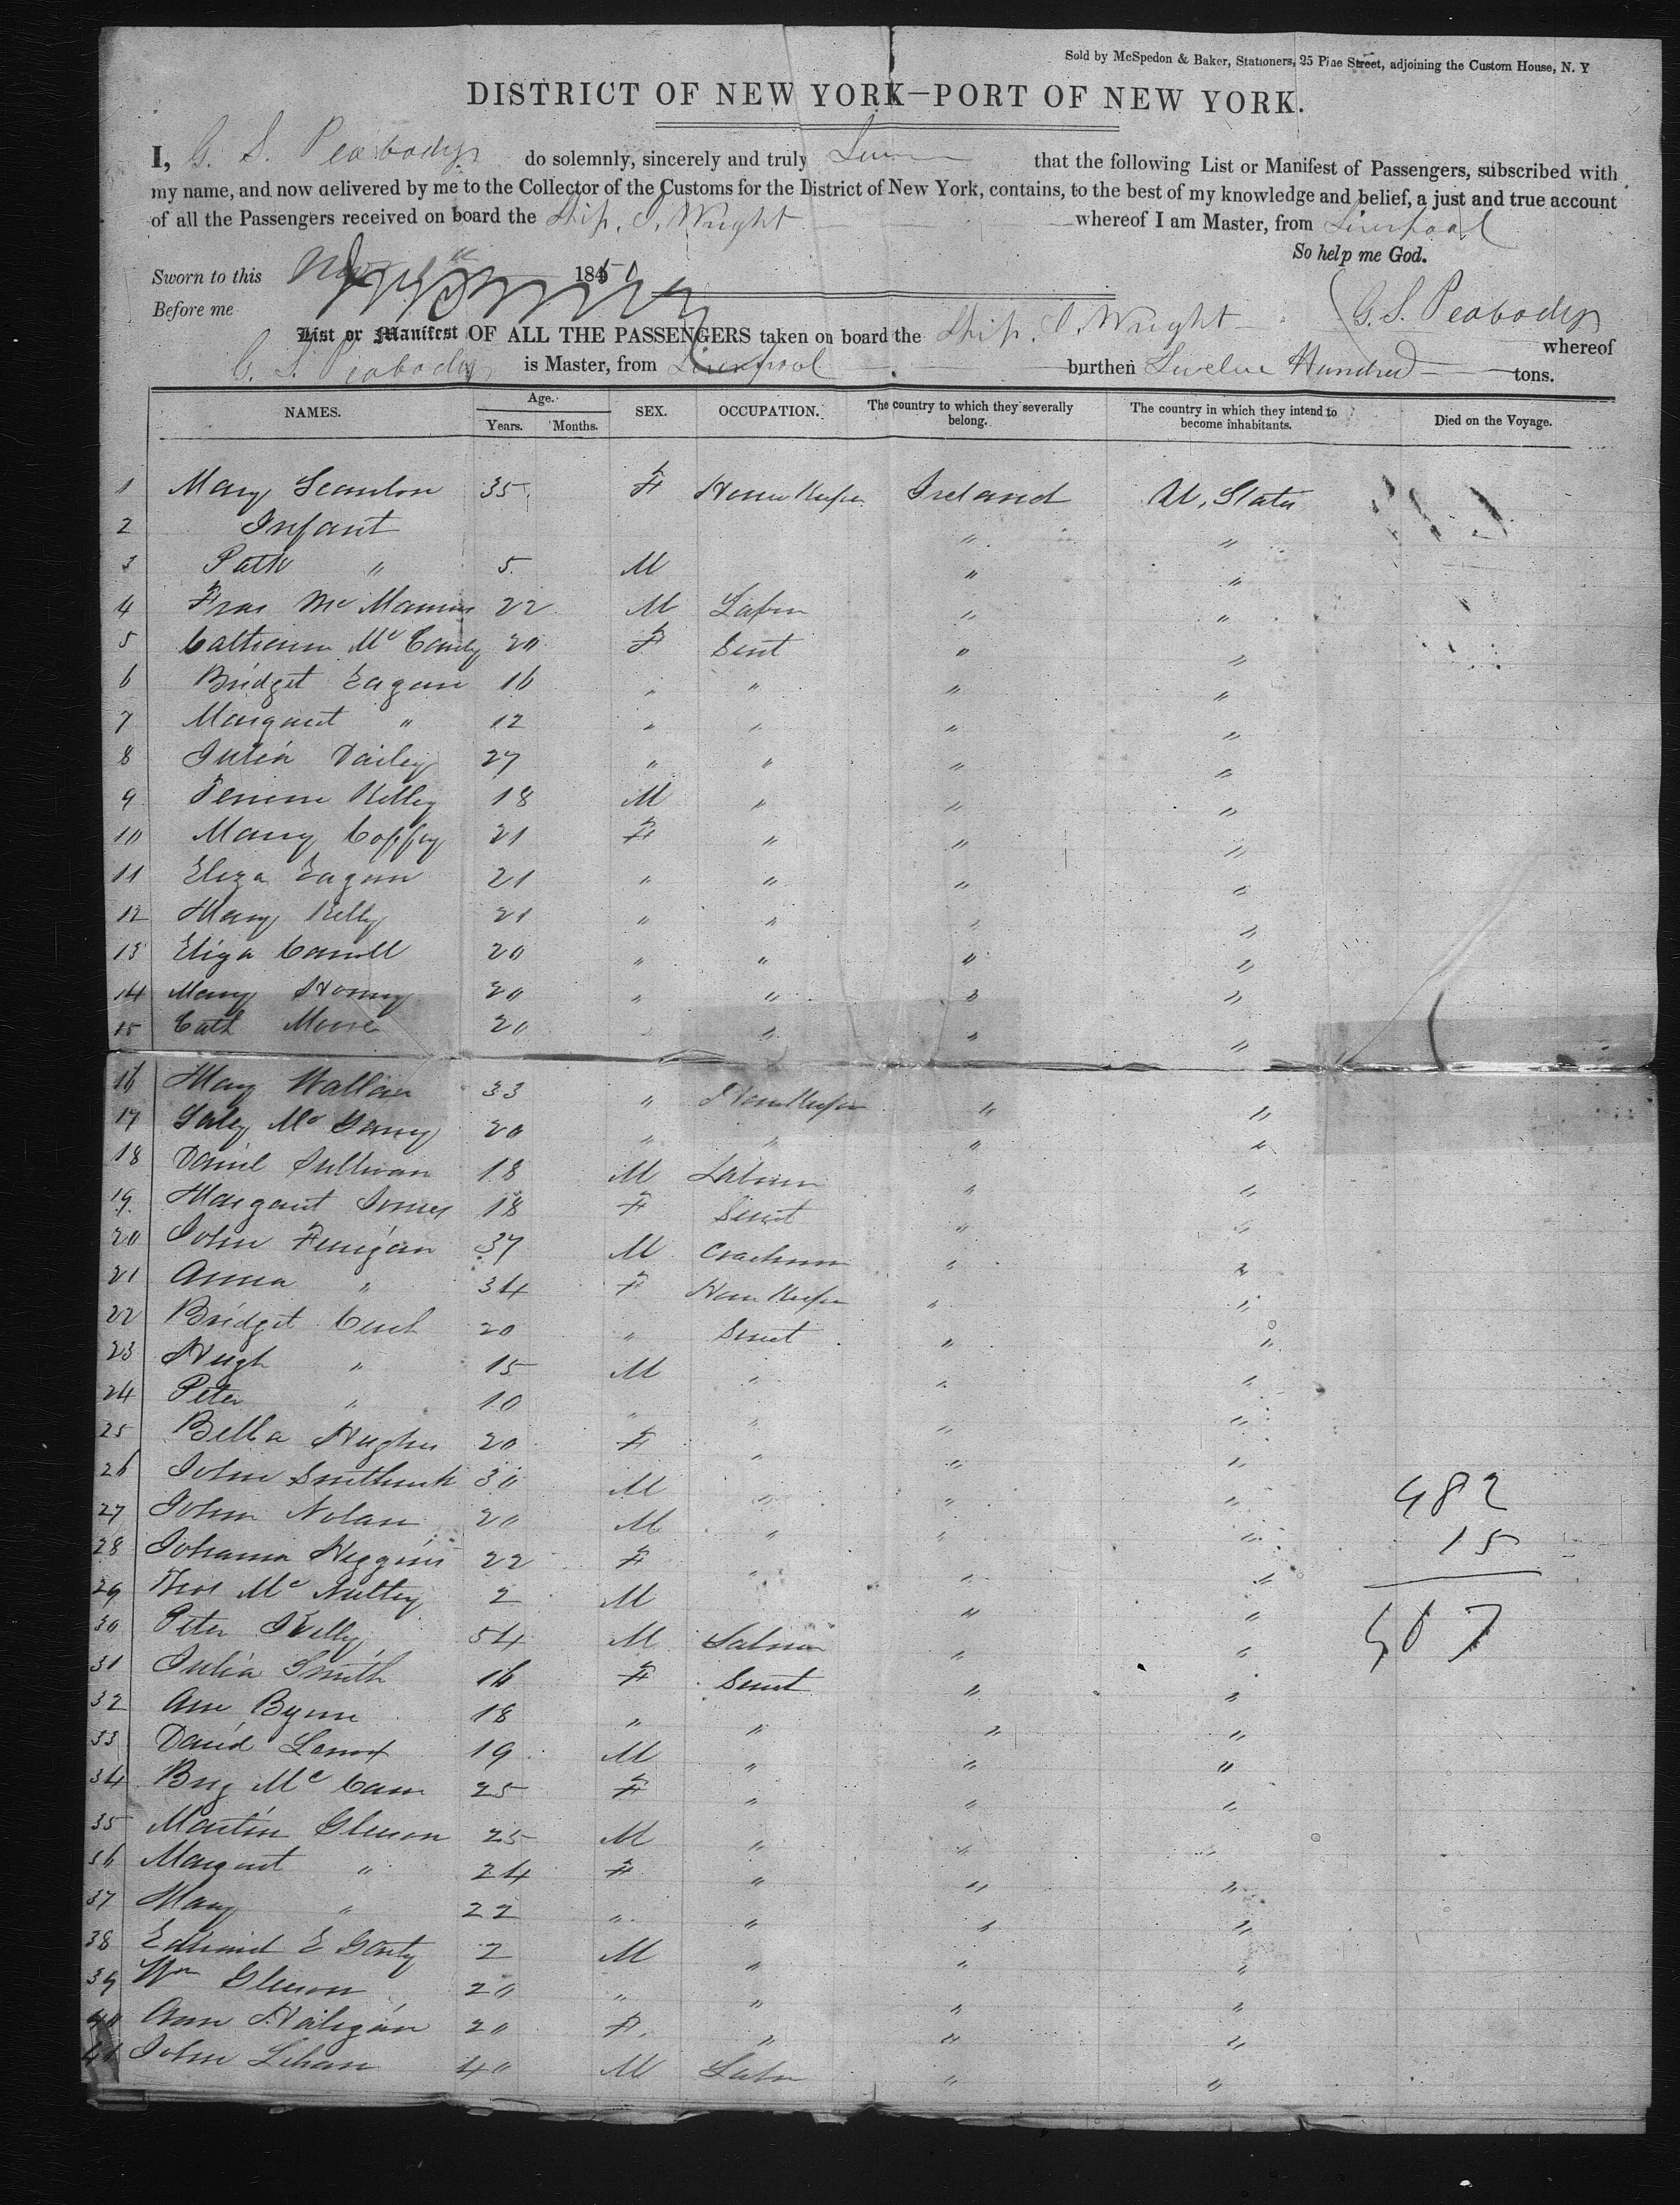 Sold by McSpedon & Baker, Stationers, 25 Pine Street, adjoining the Custom House, N. Y
DISTRICT OF NEW YORK—PORT OF NEW YORK.
I, G. S. Peabody do solemnly, sincerely and truly that the following List or Manifest of Passengers, subscribed with
my name, and now delivered by me to the Collector of the Customs for the District of New York, contains, to the best of my knowledge and belief, a just and true account
of all the Passengers received on board the Ship. I. Wright whereof I am Master, from Liverpool
So help me God.
Sworn to this Nov 185
Before me
G. S. Peabody
List or Manifest OF ALL THE PASSENGERS taken on board the Ship. I. Wright whereof
G. S. Peabody is Master, from Liverpool burthen Twelve Hundred tons.
NAMES. Age. Years. Months. SEX. OCCUPATION. The country to which they severally belong. The country in which they intend to become inhabitants. Died on the Voyage.
1 Mary Scanlon 35 F House Keeper Ireland U. States
2 Infant " "
3 Patk " 5 M " "
4 Fras McManus 22 M Labr " "
5 20 F Sevt " "
6 Bridget Eagan 16 " " " "
7 Margaret " 12 " " " "
8 Julia Dailey 27 " " " "
9 Kelley 18 M " " "
10 Mary Coffey 21 F " " "
11 Eliza Eagan 21 " " " "
12 Mary Kelly 21 " " " "
13 Eliza Carroll 20 " " " "
14 Mary 20 " " " "
15 Cath Moore 20 " " " "
16 Mary Wallace 33 " House Keeper " "
17 20 " " " "
18 Daniel Sullivan 18 M Labourer " "
19 Margaret Jones 18 F Sevt " "
20 John Finigan 37 M Coachman " "
21 Anna " 34 F House Keeper " "
22 Bridget 20 " Sevt " "
23 Hugh " 15 M " " "
24 Peter " 10 " " " "
25 Bella Hughes 20 F " " "
26 John 30 M " " "
27 John Nolan 20 M " " "
28 Johanna Higgins 22 F " " "
29 Thos McNulty 2 M " "
30 Peter Kelly 54 M Labour " "
31 Julia Smith 16 F Sevt " "
32 Ann Byrne 18 " " " "
33 David Lenox 19 M " " "
34 Brig McCann 25 F " " "
35 Martin Gleeson 25 M " " "
36 Margaret " 24 F " " "
37 Mary " 22 " " " "
38 Edmund E 2 M " " "
39 Wm Gleeson 20 " " " "
40 Ann Haligan 20 F. " " "
41 John Lehan 40 M Labr " "
482
15